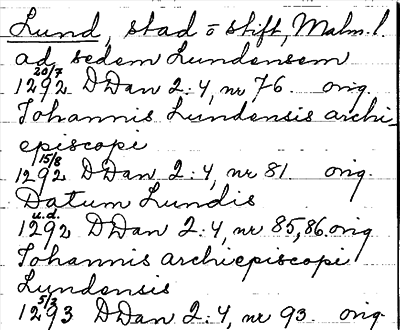 Lund, stad o stift, Malm. l.
ad sedem Lundensem
20/7
1292 DDan 2:4, nr 76. orig.
Johannis Lundensis archi-
episcopi
15/8
1292 DDan 2:4, nr 81 orig.
Datum Lundis
u.d.
1292 DDan 2:4, nr 85,86. orig
Johannis archiepiscopi
Lundensis
5/3
1293 DDan 2:4, nr 93. orig.